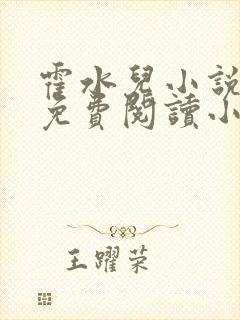 霍水兒小說
免費閱讀小
王躍荣